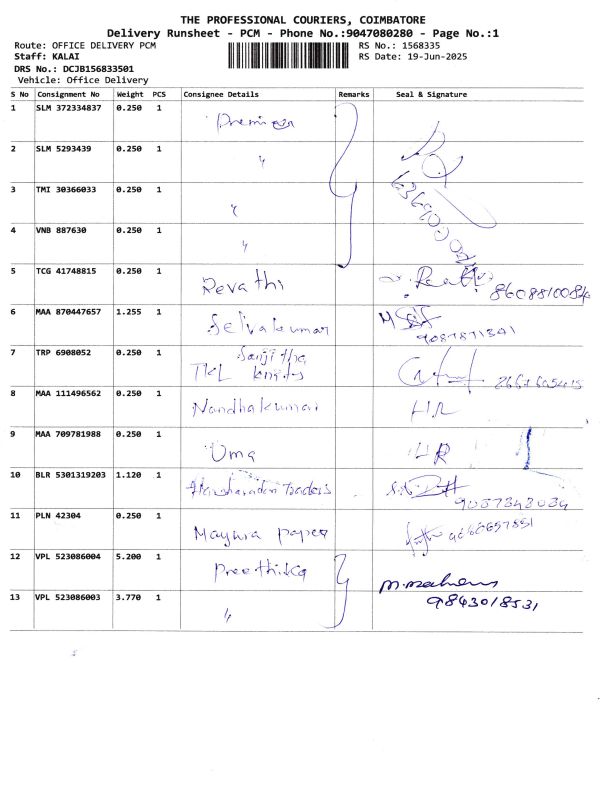 THE PROFESSIONAL COURIERS, COIMBATORE
Delivery Runsheet - PCM - Phone No.:9047080280 - Page No.:1
Route: OFFICE DELIVERY PCM
Staff: KALAI
DRS No.: DCJB156833501
Vehicle: Office Delivery
RS No.: 1568335
RS Date: 19-Jun-2025
S No Consignment No Weight PCS Consignee Details Remarks Seal & Signature
1 SLM 372334837 0.250 1 Premier
2 SLM 5293439 0.250 1 "
3 TMI 30366033 0.250 1 "
4 VNB 887630 0.250 1 "
5 TCG 41748815 0.250 1 Revathi
6 MAA 870447657 1.255 1 Selvakumar
7 TRP 6908052 0.250 1 Sanjitha
8 MAA 111496562 0.250 1 Nandhakumar HR
9 MAA 709781988 0.250 1 Uma HR
10 BLR 5301319203 1.120 1 Traders
11 PLN 42304 0.250 1 Mayura paper
12 VPL 523086004 5.200 1 Preethika
13 VPL 523086003 3.770 1 " 9843018531